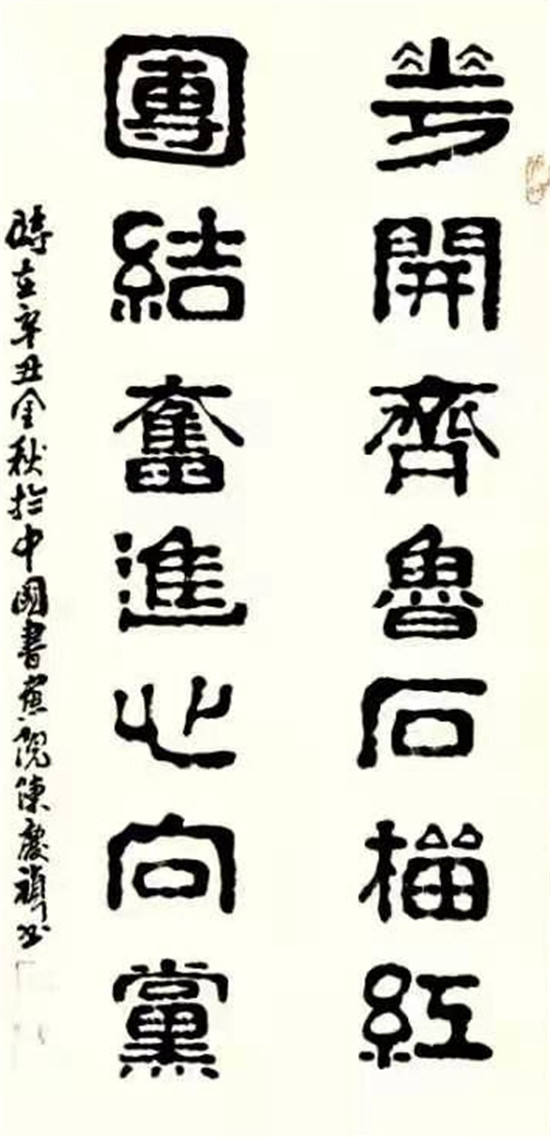 花開齊魯石榴紅
團結奮進心向黨
時在辛丑金秋於中國書畫院陳慶禎书